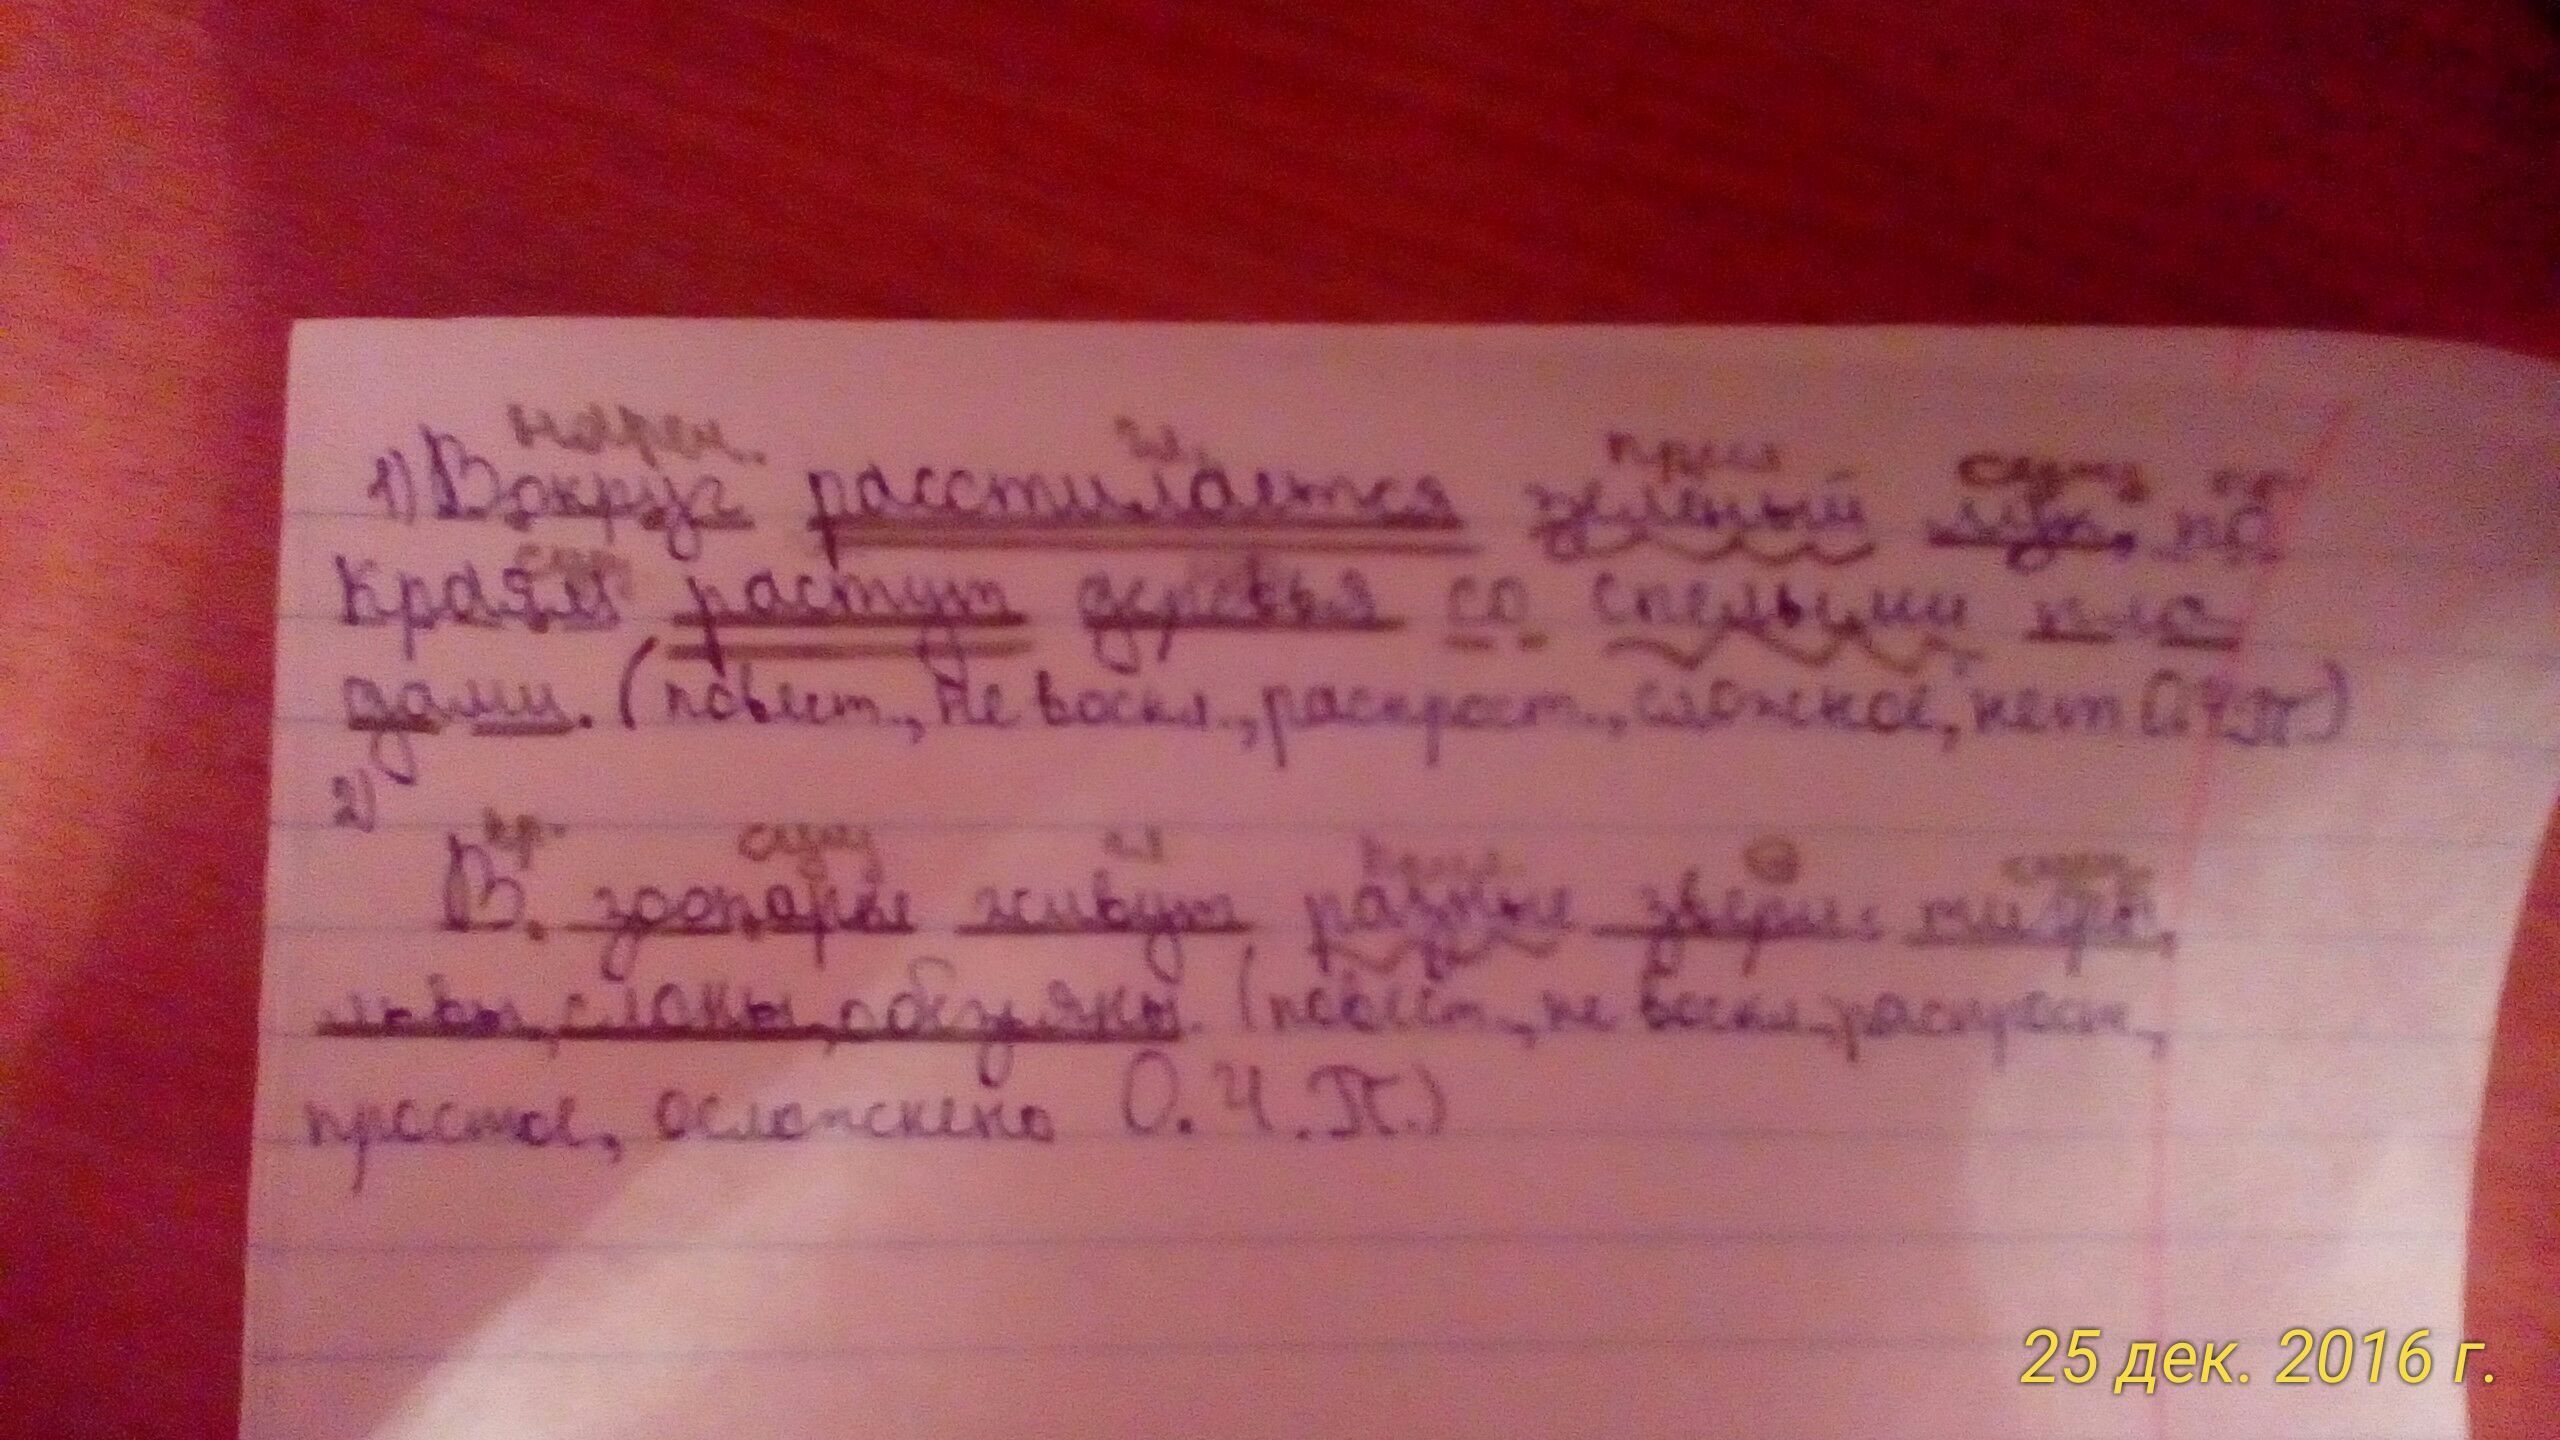 нареч. гл. прил сущ пр
1) Вокруг расстилается зеленый луг, по
сущ
краям растут деревья со спелыми пло
дами. (повест., не воскл., распрост., сложное, нет О.Ч.П)
2)
пр. сущ гл прил. сущ.
В зоопарке живут разные звери: тигры,
львы, слоны, обезьяны. (повест., не воскл., распрост.,
простое, осложнено О.Ч.П.)
25 дек. 2016 г.